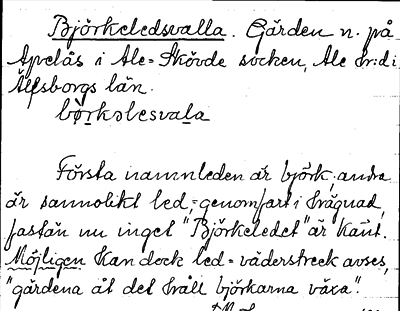 Björkeledsvalla. Gärden n. på
Apelås i Ale-Skövde socken, Ale hr:d i
Älfsborgs län.
børkəlesvala
Första namnleden är björk; andra
är sannolikt led, = genomfart i hägnad,
fastän nu inget "Björkeledet" är känt.
Möjligen kan dock led = väderstreck avses,
"gärdena åt det håll björkarna växa".